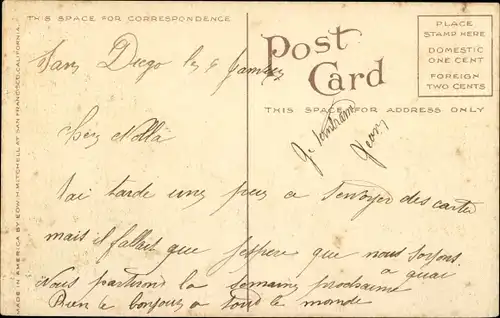 THIS SPACE FOR CORRESPONDENCE
Post Card
PLACE
STAMP HERE
DOMESTIC
ONE CENT
FOREIGN
TWO CENTS
THIS SPACE FOR ADDRESS ONLY
MADE IN AMERICA BY EDW. H. MITCHELL AT SAN FRANCISCO, CALIFORNIA.
San Diego les 6
J'ai tarde une peu a t'envoyer des carte
mais il fallait que j'espere que nous soyons
a quai
Nous partirond la semaine prochaine
Bien le bonjour a tout le monde
Jean